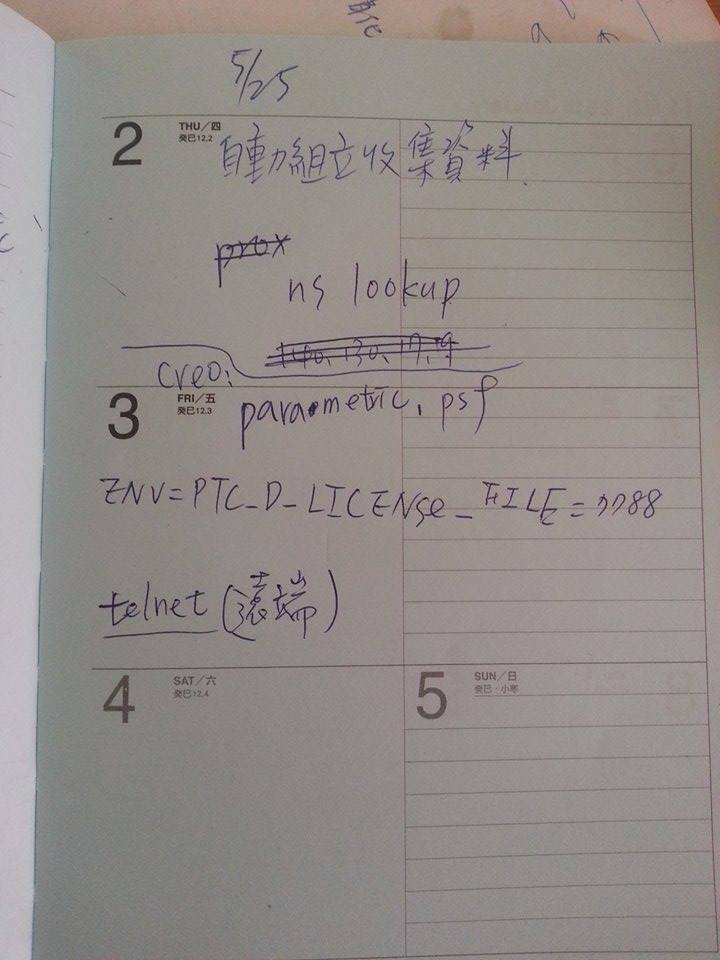 5/25
2 THU/四 自動組立收集資料.
癸巳12.2
prox
ns lookup
140.130.17.9
creo:
3 FRI/五
癸巳12.3
parametric. psf
ENV=PTC_D_LICENSe_FILE=7788
telnet (遠端)
4 SAT/六
癸巳12.4
5 SUN/日
癸巳·小寒